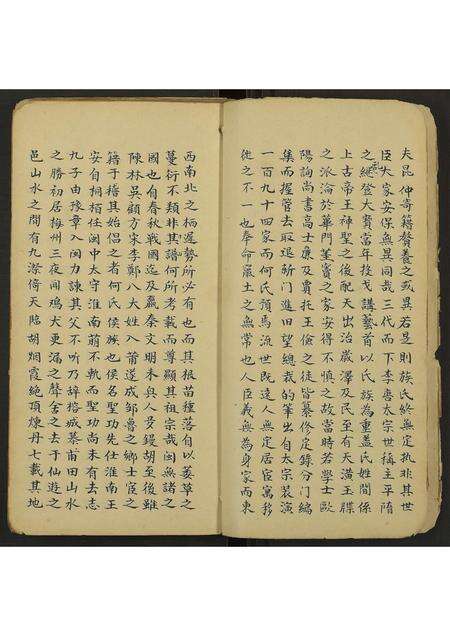 夫昆仲寄籍贅養之或異若是則族氏終無定執非其世
臣大家安保無異同哉三代而下李唐太宗世稱主平隋
之亂繼登大寶當年投戈講藝首以氏族為重蓋氏姓関係
上古帝王神聖之後配天出治歲澤及民至有天潢玉牒
之派淪於蓽門竇之家安得不慎之故當時若學士歐
陽詢尚書高士廉及賈托王儉之徒皆纂修定錄分門編
集而握管去取退新門進旧望總裁的筆出自太宗裝演
一百九十四家而何氏預馬流世既遠人無定居宦寓移
徙之不一也奉命羅土之無常也人臣義無為身家而東
西南北之栖遲勢所必有也而其根苗種落自以萎草之
蔓衍不類非其譜何所考載而尊顯其祖宗哉閩無諸之
國也自春秋戰國迄及嬴秦文明未與人爻鏝胡至後雖
陳林吳顧方宋李鄭八大姓入莆遂成鄒魯之鄉士宦之
籍于稽其始倡之者何氏侯族也侯名聖功先任淮南王
安自相栢任閩中太守淮南蓊不軌而聖功尚未有去志
九子由豫章入閩力諫其父不听乃辞榕城慕莆田山水
之勝初居梅州三夜聞鸡犬更漏之聲舍之去于仙遊之
邑山水之間有九漈倚天陷胡烟霞絶頂煉丹七載其地